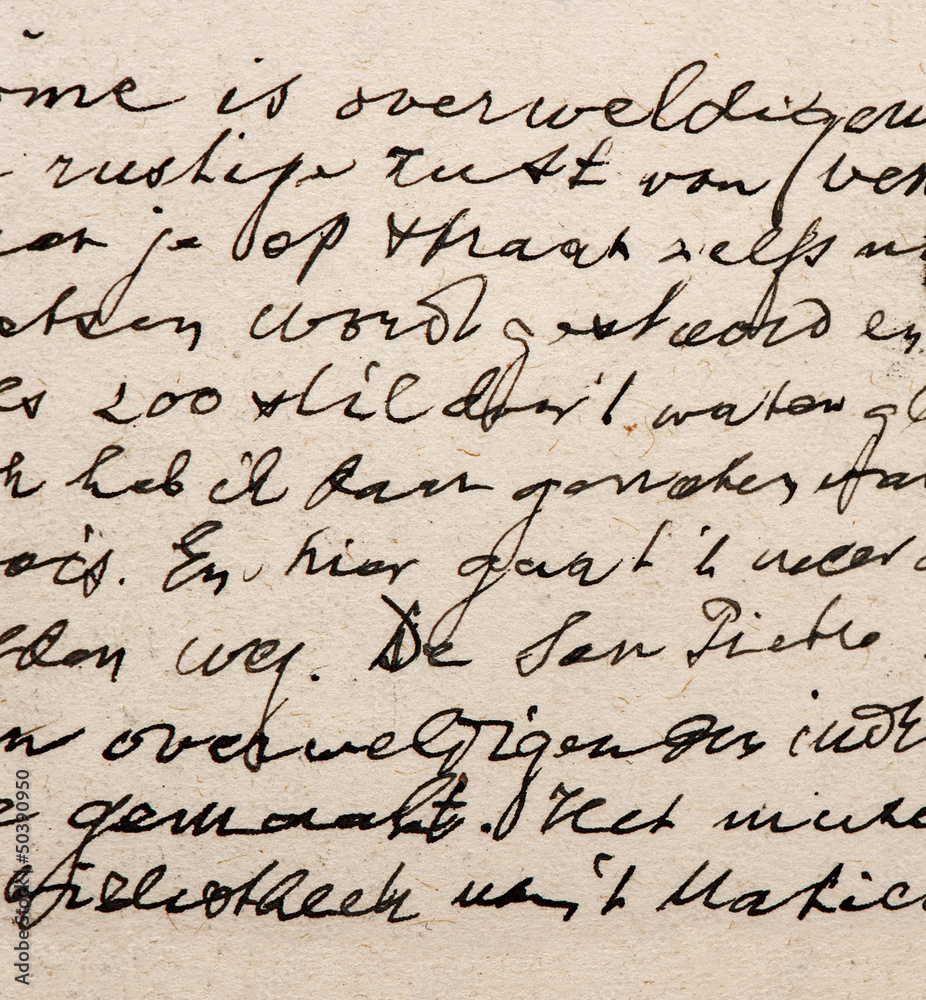 ome is overweldigen
rustige rust van Ven
je op straat zelfs
etsen wordt gestoord en
es zoo stil door 't water gl
heb ik daar genoten
ois. En hier gaat 't weer
lden weg. De San Pietro
n overweldigenden indr
e gemaakt. Het
bibliotheek van 't Vatica
Adobe Stock | #50390950